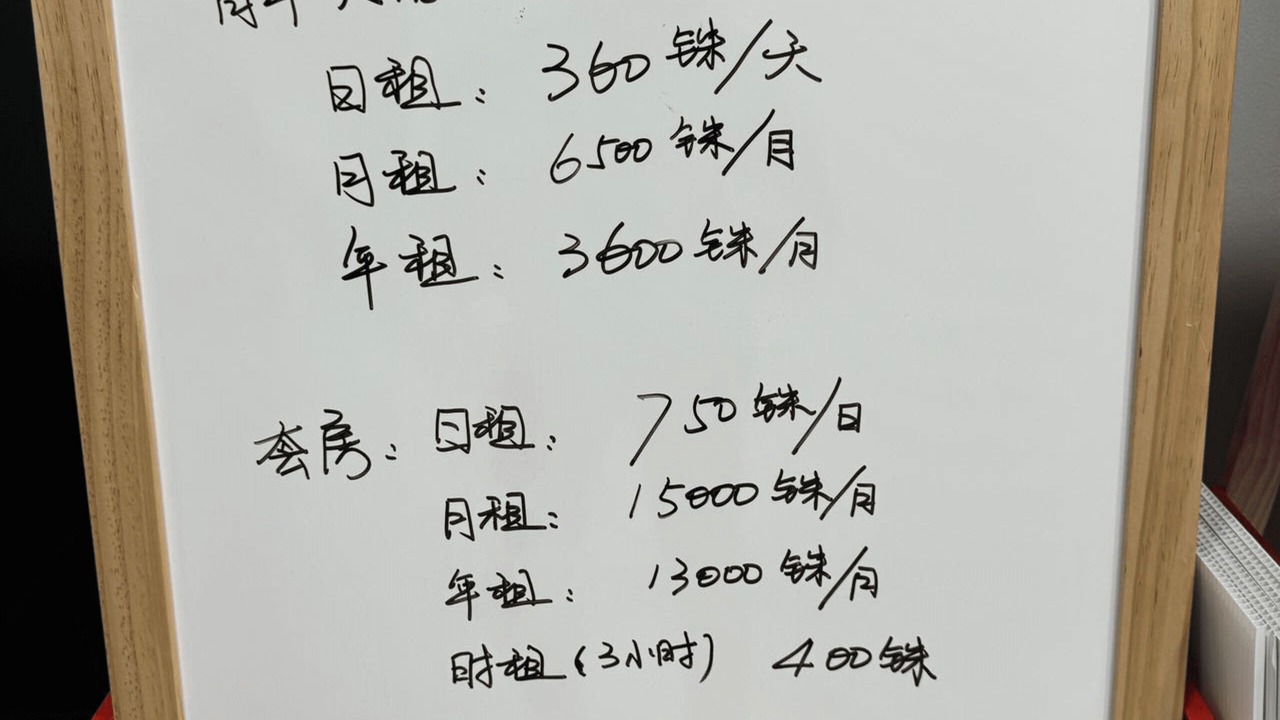 日租： 360铢/天
月租： 6500铢/月
年租： 3600铢/月
套房： 日租： 750铢/日
月租： 15000铢/月
年租： 13000铢/月
时租（3小时） 400铢